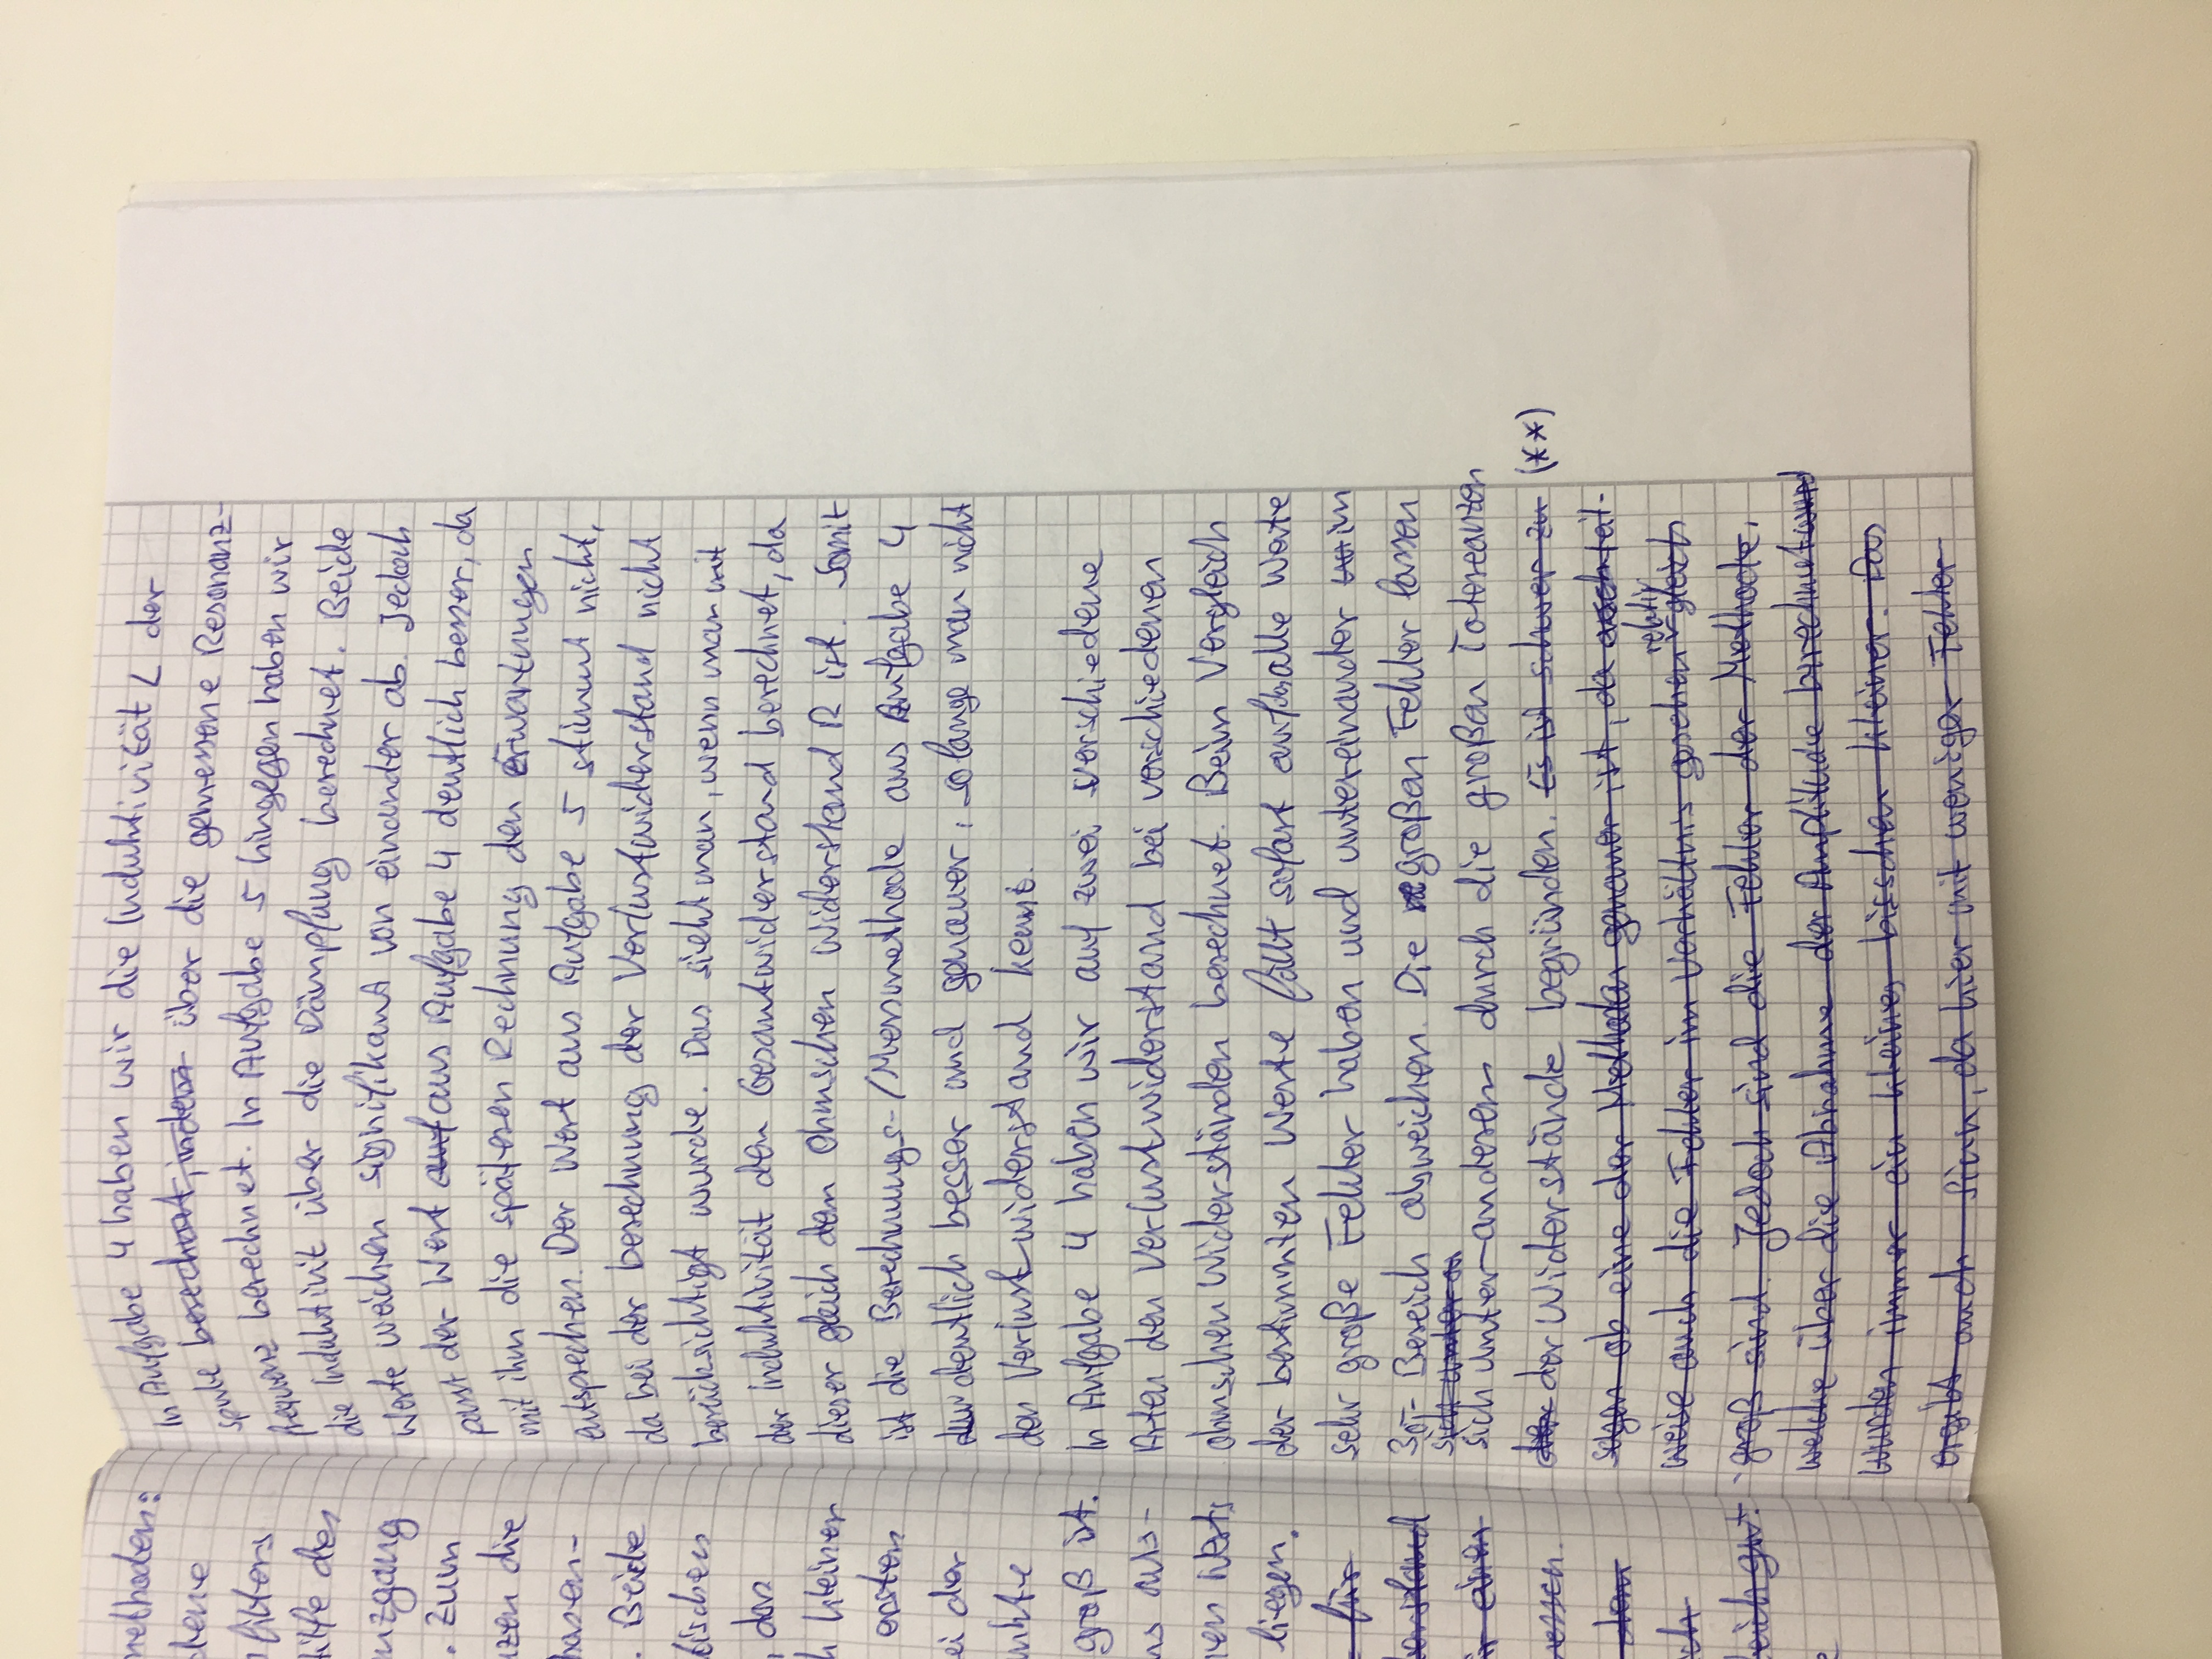 methoden:
dene
filters
hilfe des
nzgang
. Zum
nzen die
hasen-
. Beide
tischen
, das
h kleiner
ersten
ei der
unkte
groß ist.
ns aus-
nen Werts
liegen.
für
erstand
ir einen
messen.
den
ich
leich gut.
e
In Aufgabe 4 haben wir die Induktivität L der
spule berechnet, indem über die gemessene Resonanz-
frequenz berechnet. In Aufgabe 5 hingegen haben wir
die Induktivit über die Dämpfung berechnet. Beide
Werte weichen signifikant von einander ab. Jedoch
passt der Wert auf aus Aufgabe 4 deutlich besser, da
mit ihm die späteren Rechnung den Erwartungen
entsprechen. Der Wert aus Aufgabe 5 stimmt nicht,
da bei der berechnung der Verlustwiderstand nicht
berücksichtigt wurde. Das sieht man, wenn man mit
der induktivität den Gesamtwiderstand berechnet, da
dieser gleich dem Ohmschen Widerstand R ist. Somit
ist die Berechnungs-/Messmethode aus Aufgabe 4
deutlich besser und genauer, solange man nicht
den Verlustwiderstand kennt.
In Aufgabe 4 haben wir auf zwei verschiedene
Arten den Verlustwiderstand bei verschiedenen
ohmschen Widerständen berechnet. Beim Vergleich
der bestimmten Werte fällt sofart auf das alle Werte
sehr große Fehler haben und untereinander im
3σ-Bereich abweichen. Die großen Fehler lassen
sich unter an
sich unter anderem durch die großen Tolereanzen
der der Widerstände begründen. Es ist schwer zu (**)
sagen ob eine der Methoden genauer ist, da auch teil-
weise auch die Fehler im Verhältnis gesehen relativ gleich
groß sind. Jedoch sind die Fehler der Methode,
welche über die Abnahme der Amplitude berechnet wurd
wurden immer ein kleines bisschen kleiner. Das
ergibt auch Sinn, da hier mit weniger Fehler